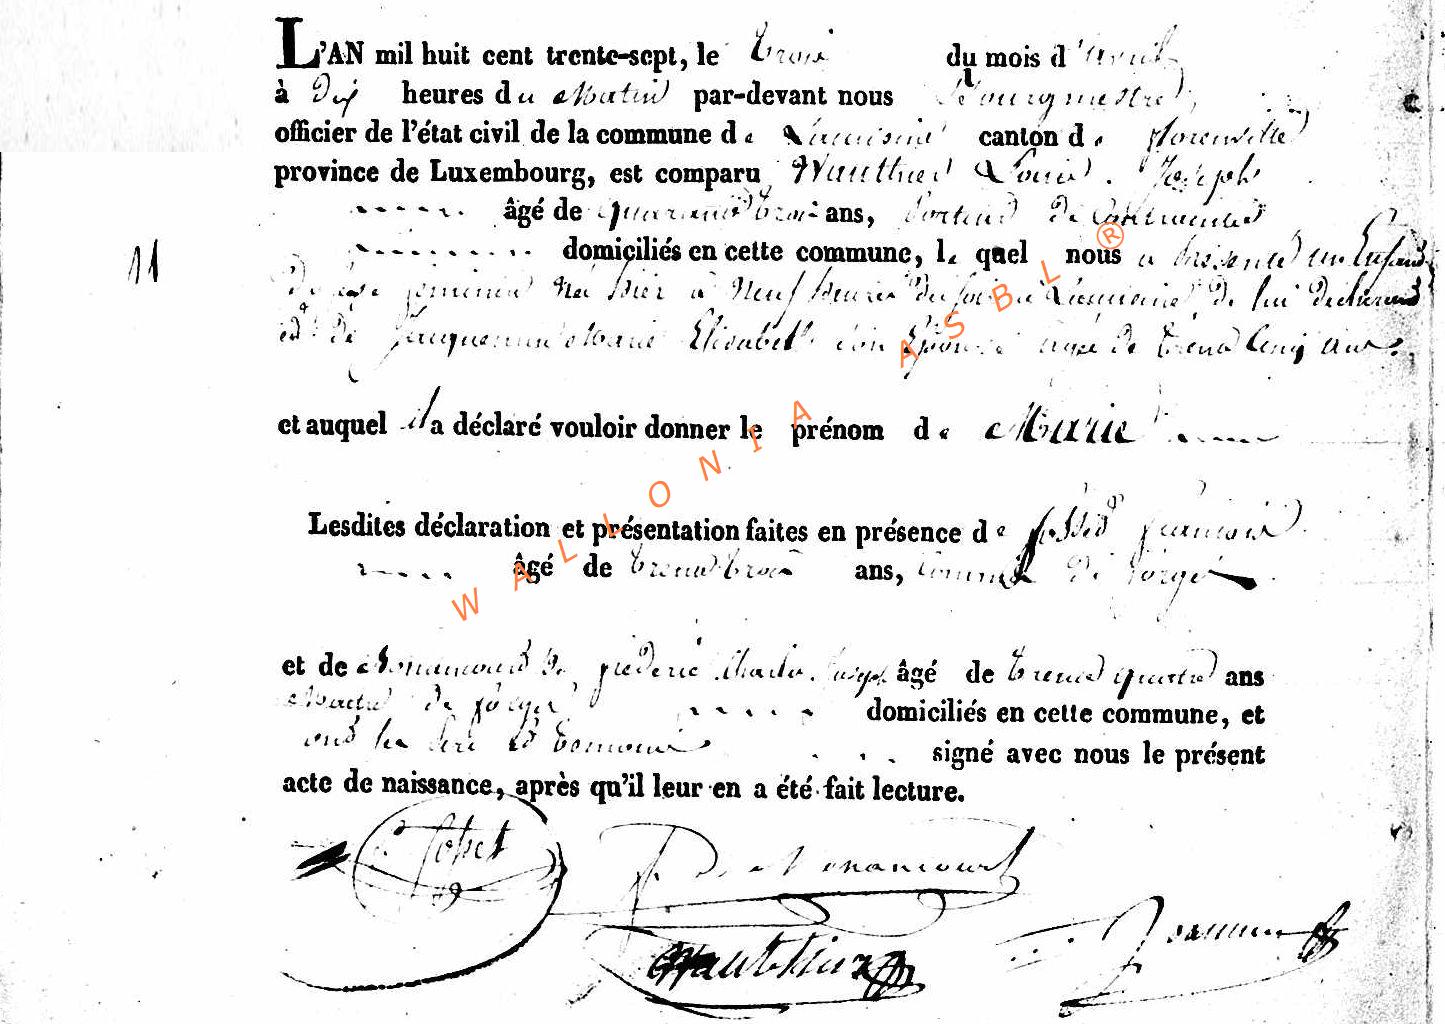 L'AN mil huit cent trente-sept, le trois du mois d'avril
à Dix heures du Matin par-devant nous Bourgmestre,
officier de l'état civil de la commune de canton de florenville
province de Luxembourg, est comparu Wauthier Louis Joseph
âgé de quarante trois ans, de Contraintes
11 domiciliés en cette commune, le quel nous a présenté un Enfant
De sexe feminin né hier à Neuf heures du soir à de lui déclarant
et de Jacquemin Marie Elisabeth son Epouse agée de trente Cinq ans.
et auquel il a déclaré vouloir donner le prénom de Marie
Lesdites déclaration et présentation faites en présence de françois
âgé de trente trois ans, Commis De forges
et de De frederic Charles Joseph âgé de trente quatre ans
Maitre de forges domiciliés en cette commune, et
ont les père et temoins signé avec nous le présent
acte de naissance, après qu'il leur en a été fait lecture.
De Monancourt
Wauthier
WALLONIA ASBL ®